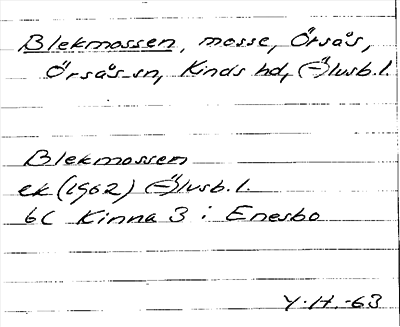 Blekmossen, mosse, Örsås,
Örsås sn, Kinds hd, Älvsb.l.
Blekmossen
ek (1962) Älvsb.l.
6C Kinna 3 i Enesbo
Y.H.-63